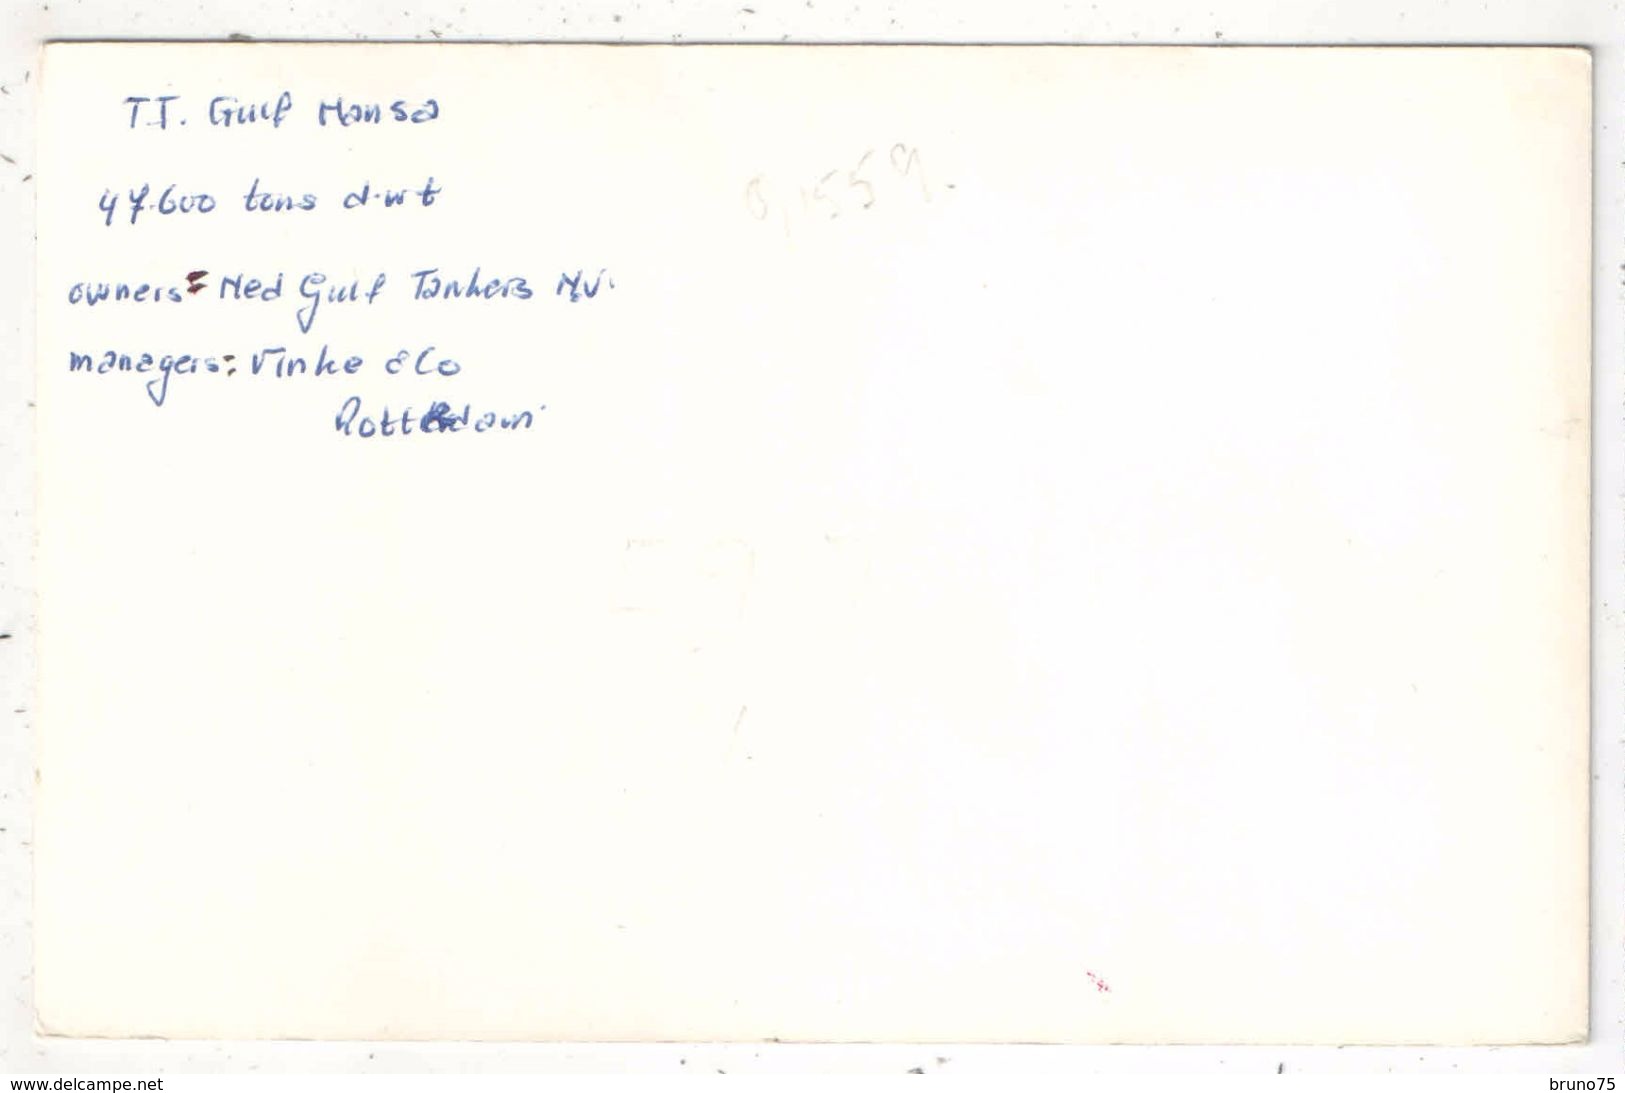 T.T. Gulf Hansa
47.600 tons d.w.t
owners: Ned Gulf Tankers N.V.
managers: Vinke & Co
Rotterdam
www.delcampe.net
bruno75